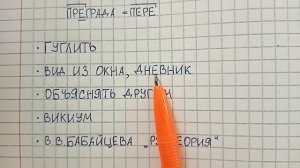 ПРЕГРАДА = ПЕРЕ
· ГУГЛИТЬ
· ВИД ИЗ ОКНА, ДНЕВНИК
· ОБЪЯСНЯТЬ ДРУГИМ
· ВИКИУМ
· В.В.БАБАЙЦЕВА „ ТЕОРИЯ"